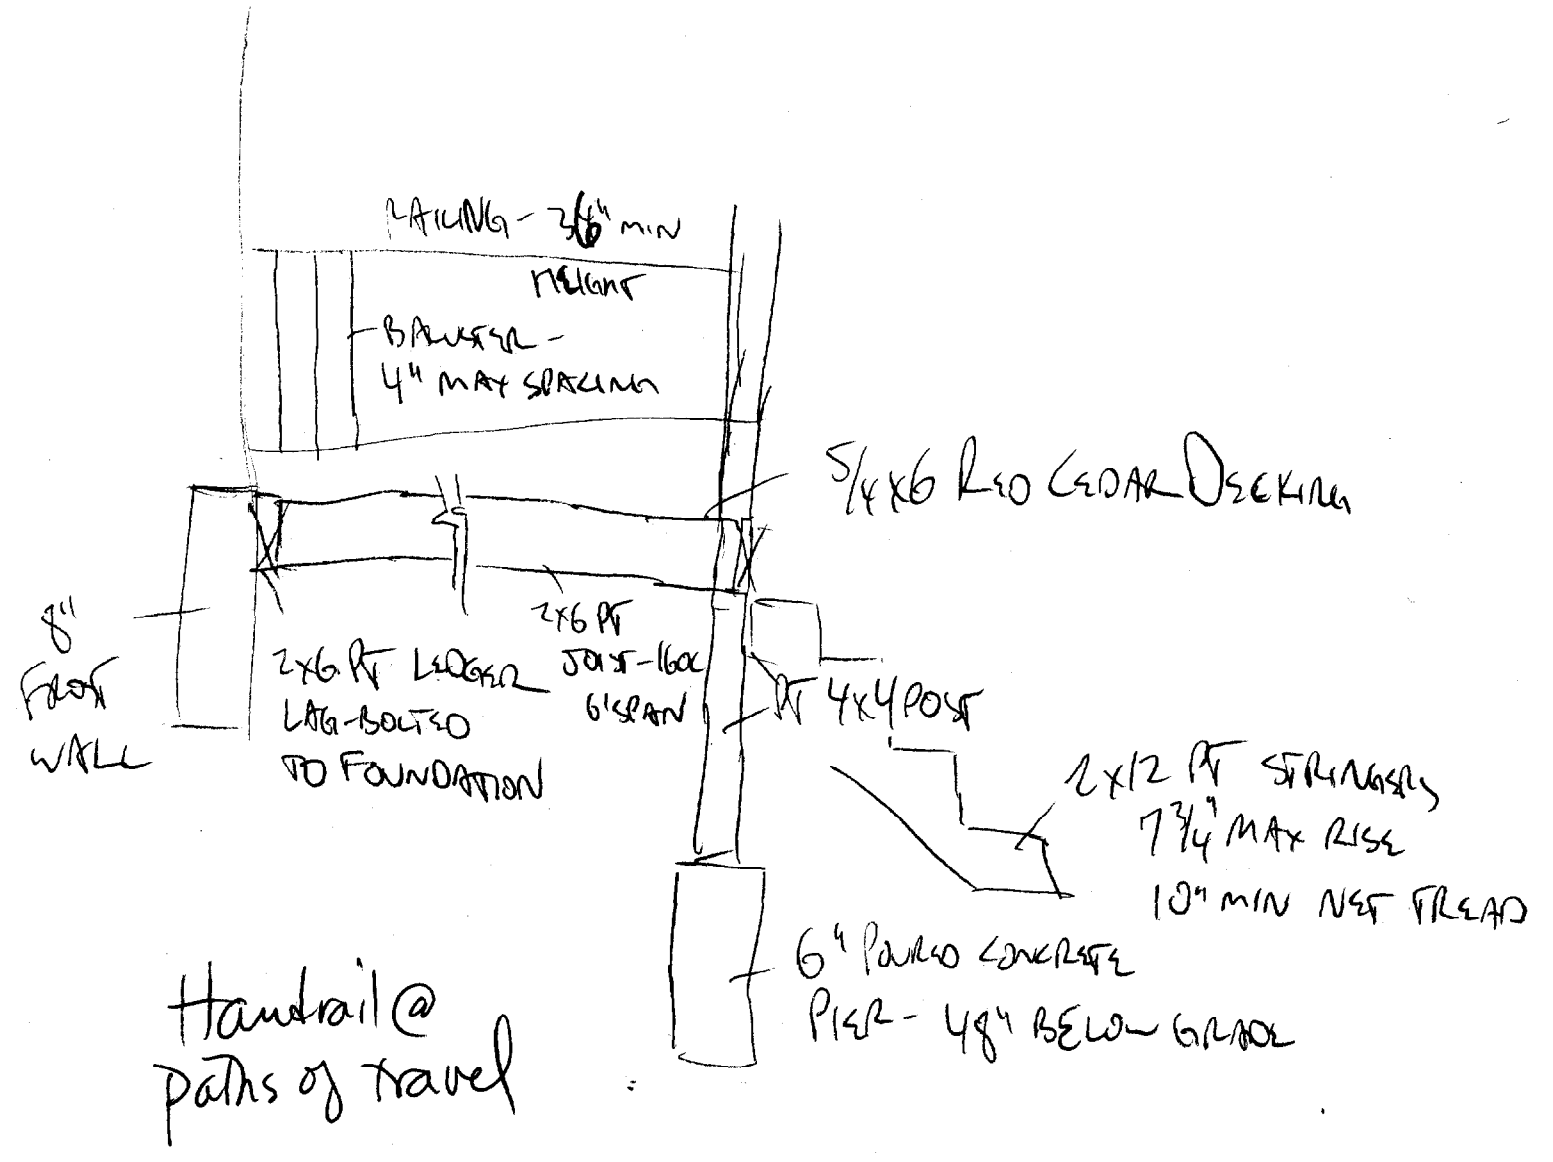 RAILING - 36" MIN
HEIGHT
BALUSTER -
4" MAX SPACING
5/4x6 RED CEDAR DECKING
8"
FROST
WALL
2x6 PT LEDGER
LAG-BOLTED
TO FOUNDATION
2x6 PT
JOIST-16OC
6' SPAN
PT 4x4 POST
2x12 PT STRINGERS
7 3/4" MAX RISE
10" MIN NET TREAD
6" POURED CONCRETE
PIER - 48" BELOW GRADE
Handrail @
paths of travel